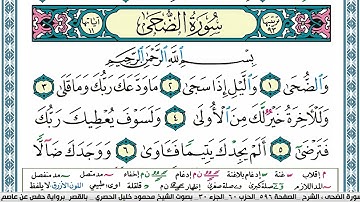 سُورَةُ الضُّحَى
بِسْمِ اللَّهِ الرَّحْمَٰنِ الرَّحِيمِ
وَالضُّحَىٰ ١ وَاللَّيْلِ إِذَا سَجَىٰ ٢ مَا وَدَّعَكَ رَبُّكَ وَمَا قَلَىٰ ٣
وَلَلْآخِرَةُ خَيْرٌ لَّكَ مِنَ الْأُولَىٰ ٤ وَلَسَوْفَ يُعْطِيكَ رَبُّكَ
فَتَرْضَىٰ ٥ أَلَمْ يَجِدْكَ يَتِيمًا فَآوَىٰ ٦ وَوَجَدَكَ ضَالًّا
سورة الضحى - الشرح الصفحة ٥٩٦ الحزب ٦٠ الجزء ٣٠ بصوت الشيخ محمود خليل الحصري بالقصر برواية حفص عن عاصم